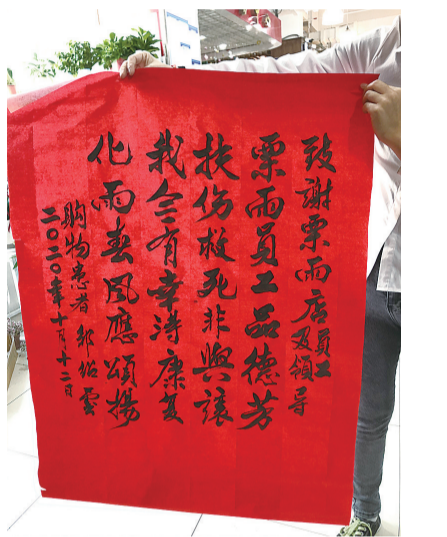 致謝栗雨店員工及領导
栗雨員工品德芳
扶伤救死非與讓
我今有幸淂康复
化雨春风應頌揚
购物患者 邹雲
二〇二〇年十月十二日